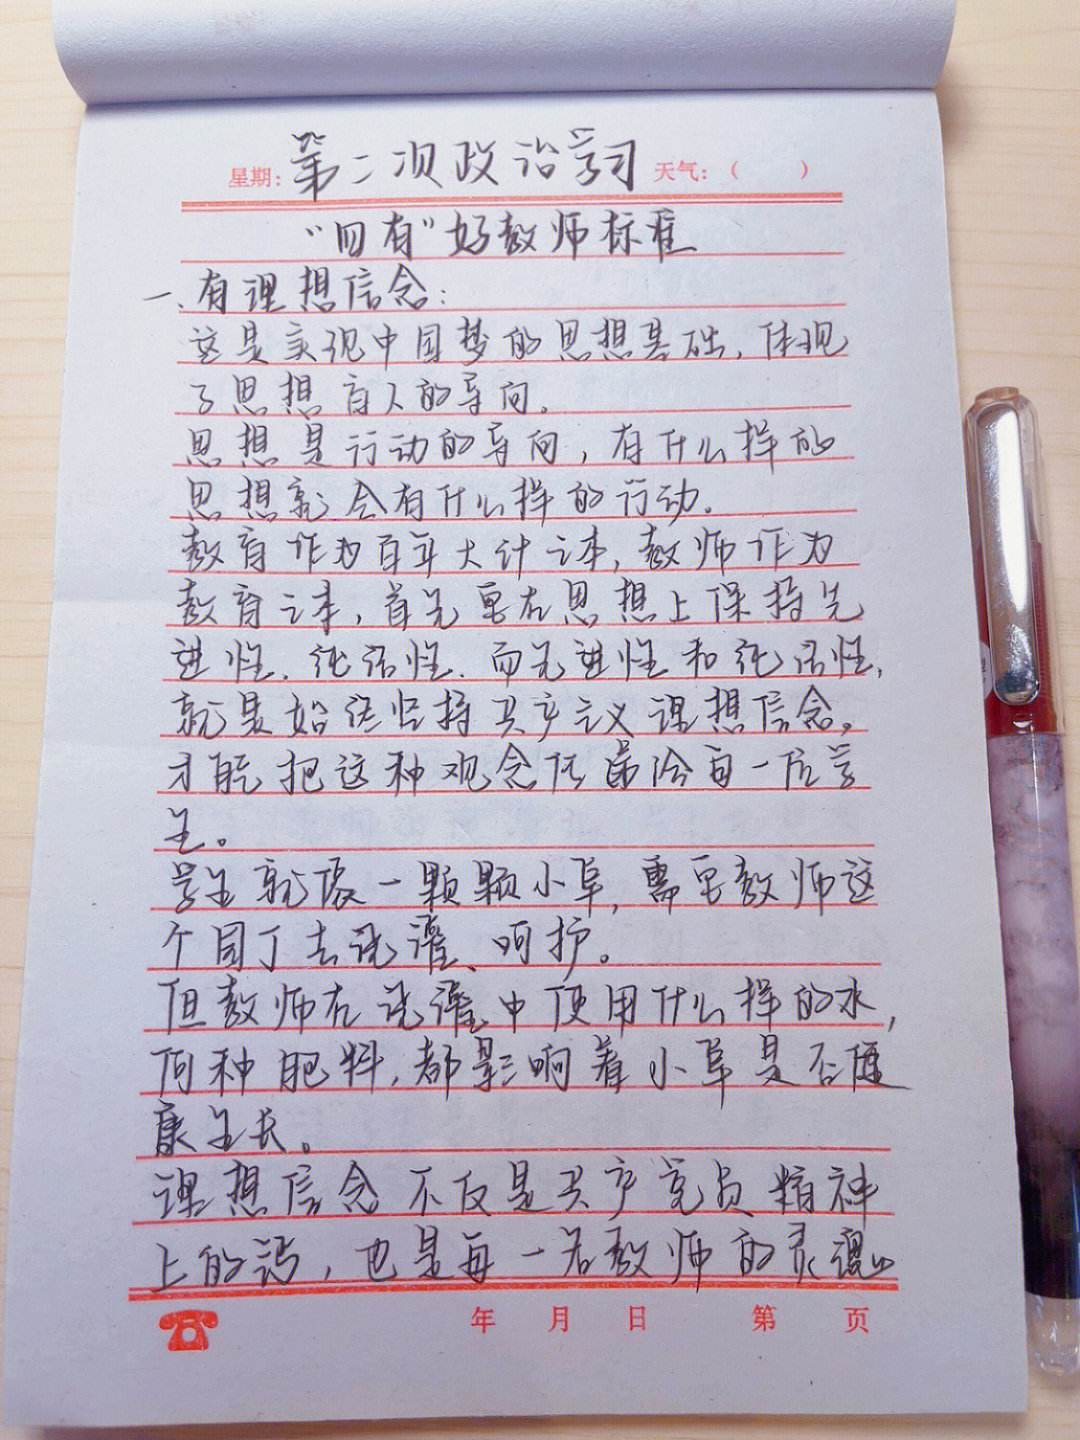 星期: 第二次政治学习 天气:( )
“四有”好教师标准
一、有理想信念:
这是实现中国梦的思想基础,体现
了思想育人的导向。
思想是行动的导向,有什么样的
思想就会有什么样的行动。
教育作为百年大计之本,教师作为
教育之本,首先要在思想上保持先
进性、纯洁性.而先进性和纯洁性,
就是始终坚持共产主义理想信念,
才能把这种观念传递给每一位学
生。
学生就像一颗颗小草,需要教师这
个园丁去浇灌、呵护。
但教师在浇灌中使用什么样的水,
何种肥料,都影响着小草是否健
康生长。
理想信念不仅是共产党员精神
上的钙,也是每一名教师的灵魂。
年 月 日 第 页